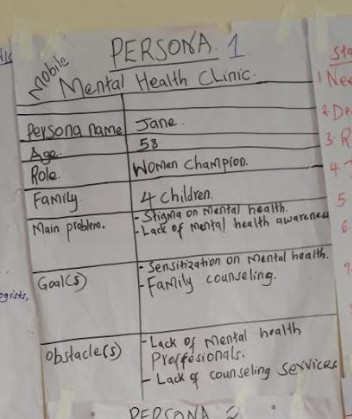 PERSONA. 1
Mobile
Mental Health Clinic.
Persona name Jane.
Age 58
Role. Women Champion.
Family 4 Children.
Main problem. - Stigma on Mental health.
- Lack of mental health awareness
Goal(s) - Sensitization on Mental health.
- Family counseling.
Obstacle(s) - Lack of Mental health
Proffesionals.
- Lack of counseling services
PERSONA 2
ogists,
1.
2.
3. R
4.
5.
6.